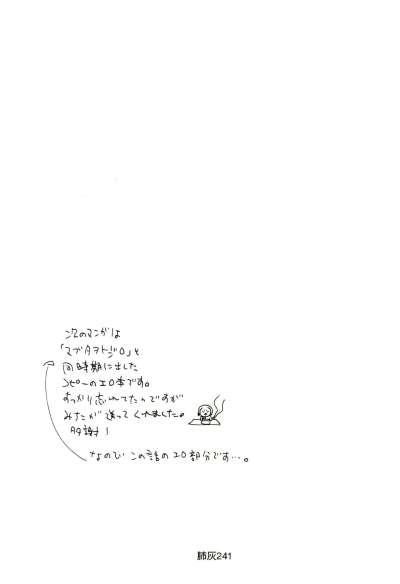 次のマンガは
「マブタヲトジロ」と
同時期に出した
コピーのエロ本です。
すっかり忘れてたのですが
みたが送ってくれました。
多謝!
なのでこの話のエロ部分です…。
肺灰241